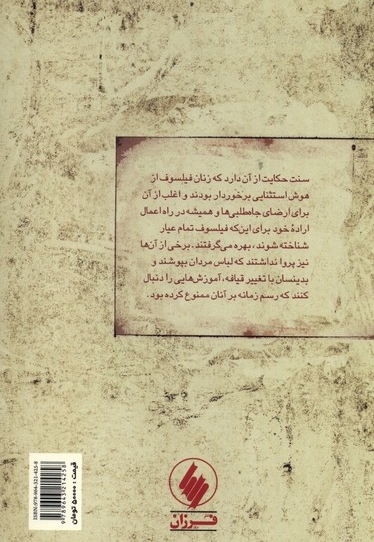 سنت حکایت از آن دارد که زنان فیلسوف از
هوش استثنایی برخوردار بودند و اغلب از آن
برای ارضای جاه‌طلبی‌ها و همیشه در راه اعمال
ارادهٔ خود برای این‌که فیلسوف تمام عیار
شناخته شوند، بهره می‌گرفتند. برخی از آن‌ها
نیز پروا نداشتند که لباس مردان بپوشند و
بدینسان با تغییر قیافه، آموزش‌هایی را دنبال
کنند که رسم زمانه بر آنان ممنوع کرده بود.
فرزان
قیمت: ۵۰۰۰۰ تومان
ISBN: 978-964-321-425-8
9789643214258